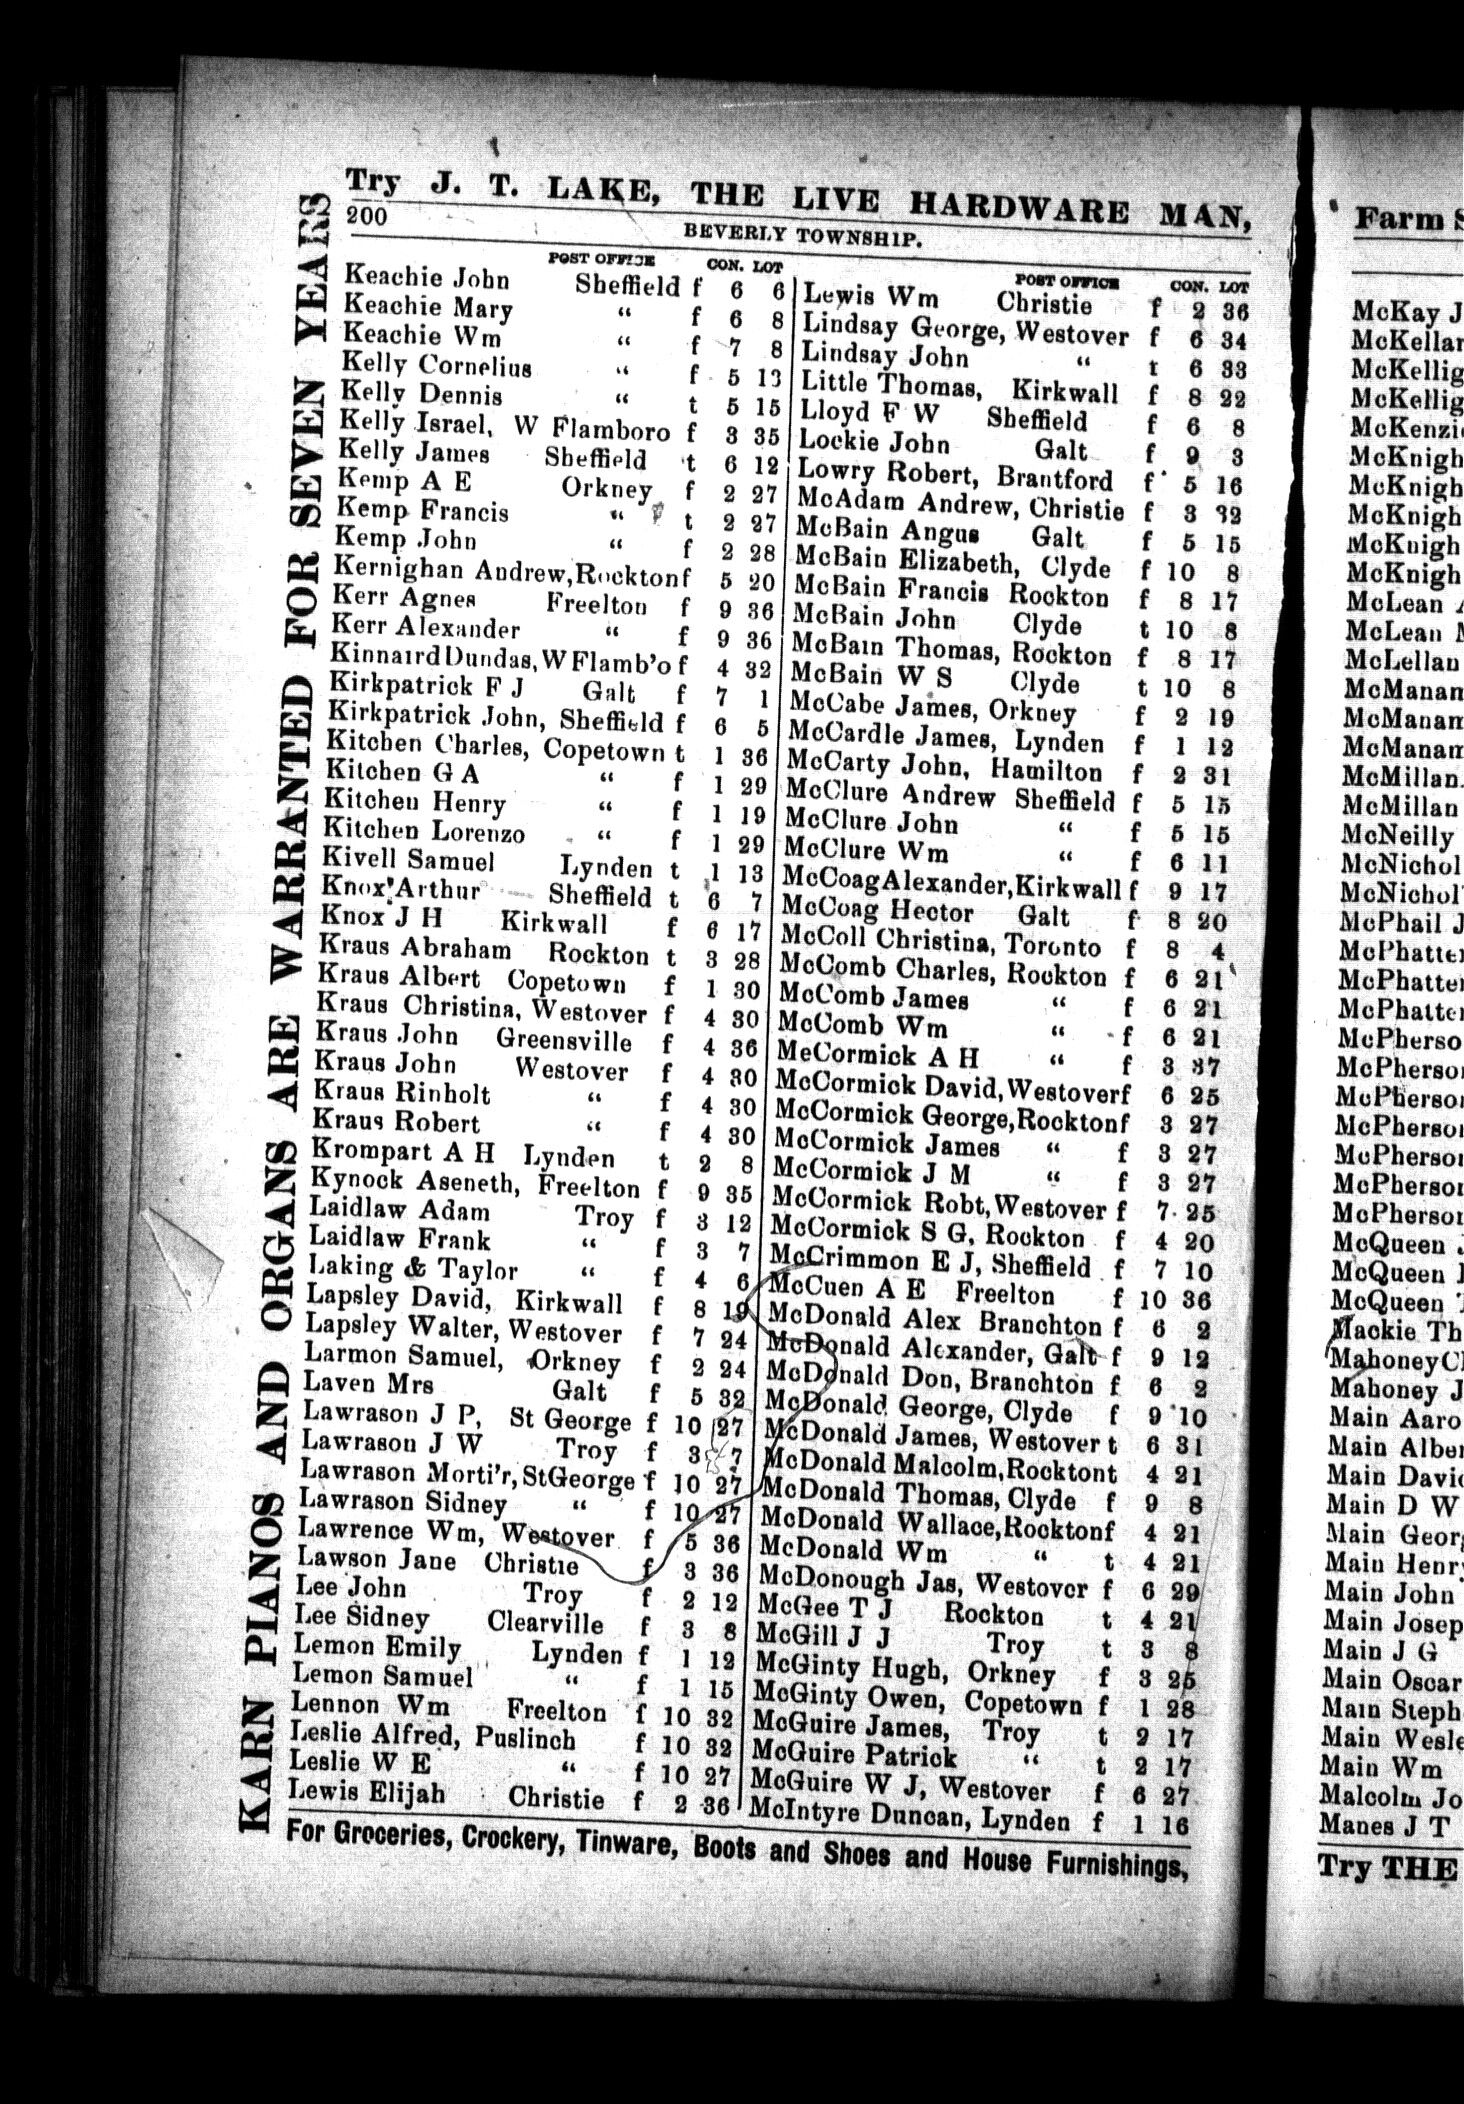 Try J. T. LAKE, THE LIVE HARDWARE MAN,
200
BEVERLY TOWNSHIP.
KARN PIANOS AND ORGANS ARE WARRANTED FOR SEVEN YEARS
POST OFFICE CON. LOT
Keachie John Sheffield f 6 6
Keachie Mary " f 6 8
Keachie Wm " f 7 8
Kelly Cornelius " f 5 13
Kelly Dennis " t 5 15
Kelly Israel, W Flamboro f 3 35
Kelly James Sheffield t 6 12
Kemp A E Orkney f 2 27
Kemp Francis " t 2 27
Kemp John " f 2 28
Kernighan Andrew, Rockton f 5 20
Kerr Agnes Freelton f 9 36
Kerr Alexander " f 9 36
Kinnaird Dundas, W Flamb'o f 4 32
Kirkpatrick F J Galt f 7 1
Kirkpatrick John, Sheffield f 6 5
Kitchen Charles, Copetown t 1 36
Kitchen G A " f 1 29
Kitchen Henry " f 1 19
Kitchen Lorenzo " f 1 29
Kivell Samuel Lynden t 1 13
Knox Arthur Sheffield t 6 7
Knox J H Kirkwall f 6 17
Kraus Abraham Rockton t 3 28
Kraus Albert Copetown f 1 30
Kraus Christina, Westover f 4 30
Kraus John Greensville f 4 36
Kraus John Westover f 4 30
Kraus Rinholt " f 4 30
Kraus Robert " f 4 30
Krompart A H Lynden t 2 8
Kynock Aseneth, Freelton f 9 35
Laidlaw Adam Troy f 3 12
Laidlaw Frank " f 3 7
Laking & Taylor " f 4 6
Lapsley David, Kirkwall f 8 19
Lapsley Walter, Westover f 7 24
Larmon Samuel, Orkney f 2 24
Laven Mrs Galt f 5 32
Lawrason J P, St George f 10 27
Lawrason J W Troy f 3 7
Lawrason Morti'r, St George f 10 27
Lawrason Sidney " f 10 27
Lawrence Wm, Westover f 5 36
Lawson Jane Christie f 3 36
Lee John Troy f 2 12
Lee Sidney Clearville f 3 8
Lemon Emily Lynden f 1 12
Lemon Samuel " f 1 15
Lennon Wm Freelton f 10 32
Leslie Alfred, Puslinch f 10 32
Leslie W E " f 10 27
Lewis Elijah Christie f 2 36
POST OFFICE CON. LOT
Lewis Wm Christie f 2 36
Lindsay George, Westover f 6 34
Lindsay John " t 6 33
Little Thomas, Kirkwall f 8 22
Lloyd F W Sheffield f 6 8
Lockie John Galt f 9 3
Lowry Robert, Brantford f 5 16
McAdam Andrew, Christie f 3 32
McBain Angus Galt f 5 15
McBain Elizabeth, Clyde f 10 8
McBain Francis Rockton f 8 17
McBain John Clyde t 10 8
McBain Thomas, Rockton f 8 17
McBain W S Clyde t 10 8
McCabe James, Orkney f 2 19
McCardle James, Lynden f 1 12
McCarty John, Hamilton f 2 31
McClure Andrew Sheffield f 5 15
McClure John " f 5 15
McClure Wm " f 6 11
McCoag Alexander, Kirkwall f 9 17
McCoag Hector Galt f 8 20
McColl Christina, Toronto f 8 4
McComb Charles, Rockton f 6 21
McComb James " f 6 21
McComb Wm " f 6 21
McCormick A H " f 3 37
McCormick David, Westover f 6 25
McCormick George, Rockton f 3 27
McCormick James " f 3 27
McCormick J M " f 3 27
McCormick Robt, Westover f 7 25
McCormick S G, Rockton f 4 20
McCrimmon E J, Sheffield f 7 10
McCuen A E Freelton f 10 36
McDonald Alex Branchton f 6 2
McDonald Alexander, Galt f 9 12
McDonald Don, Branchton f 6 2
McDonald George, Clyde f 9 10
McDonald James, Westover t 6 31
McDonald Malcolm, Rockton t 4 21
McDonald Thomas, Clyde f 9 8
McDonald Wallace, Rockton f 4 21
McDonald Wm " t 4 21
McDonough Jas, Westover f 6 29
McGee T J Rockton t 4 21
McGill J J Troy t 3 8
McGinty Hugh, Orkney f 3 25
McGinty Owen, Copetown f 1 28
McGuire James, Troy t 2 17
McGuire Patrick " t 2 17
McGuire W J, Westover f 6 27
McIntyre Duncan, Lynden f 1 16
For Groceries, Crockery, Tinware, Boots and Shoes and House Furnishings,
Farm S
McKay J
McKellar
McKellig
McKellig
McKenzi
McKnigh
McKnigh
McKnigh
McKnigh
McKnigh
McLean A
McLean M
McLellan
McManam
McManam
McManam
McMillan
McMillan
McNeilly
McNichol
McNichol
McPhail J
McPhatte
McPhatte
McPhatte
McPherso
McPherso
McPherso
McPherso
McPherso
McPherso
McPherso
McQueen J
McQueen
McQueen
Mackie Th
Mahoney C
Mahoney J
Main Aaro
Main Albe
Main Davi
Main D W
Main Geor
Main Henr
Main John
Main Josep
Main J G
Main Oscar
Main Steph
Main Wesle
Main Wm
Malcolm Jo
Manes J T
Try THE